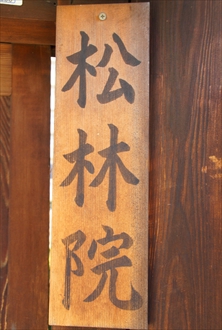 松林院